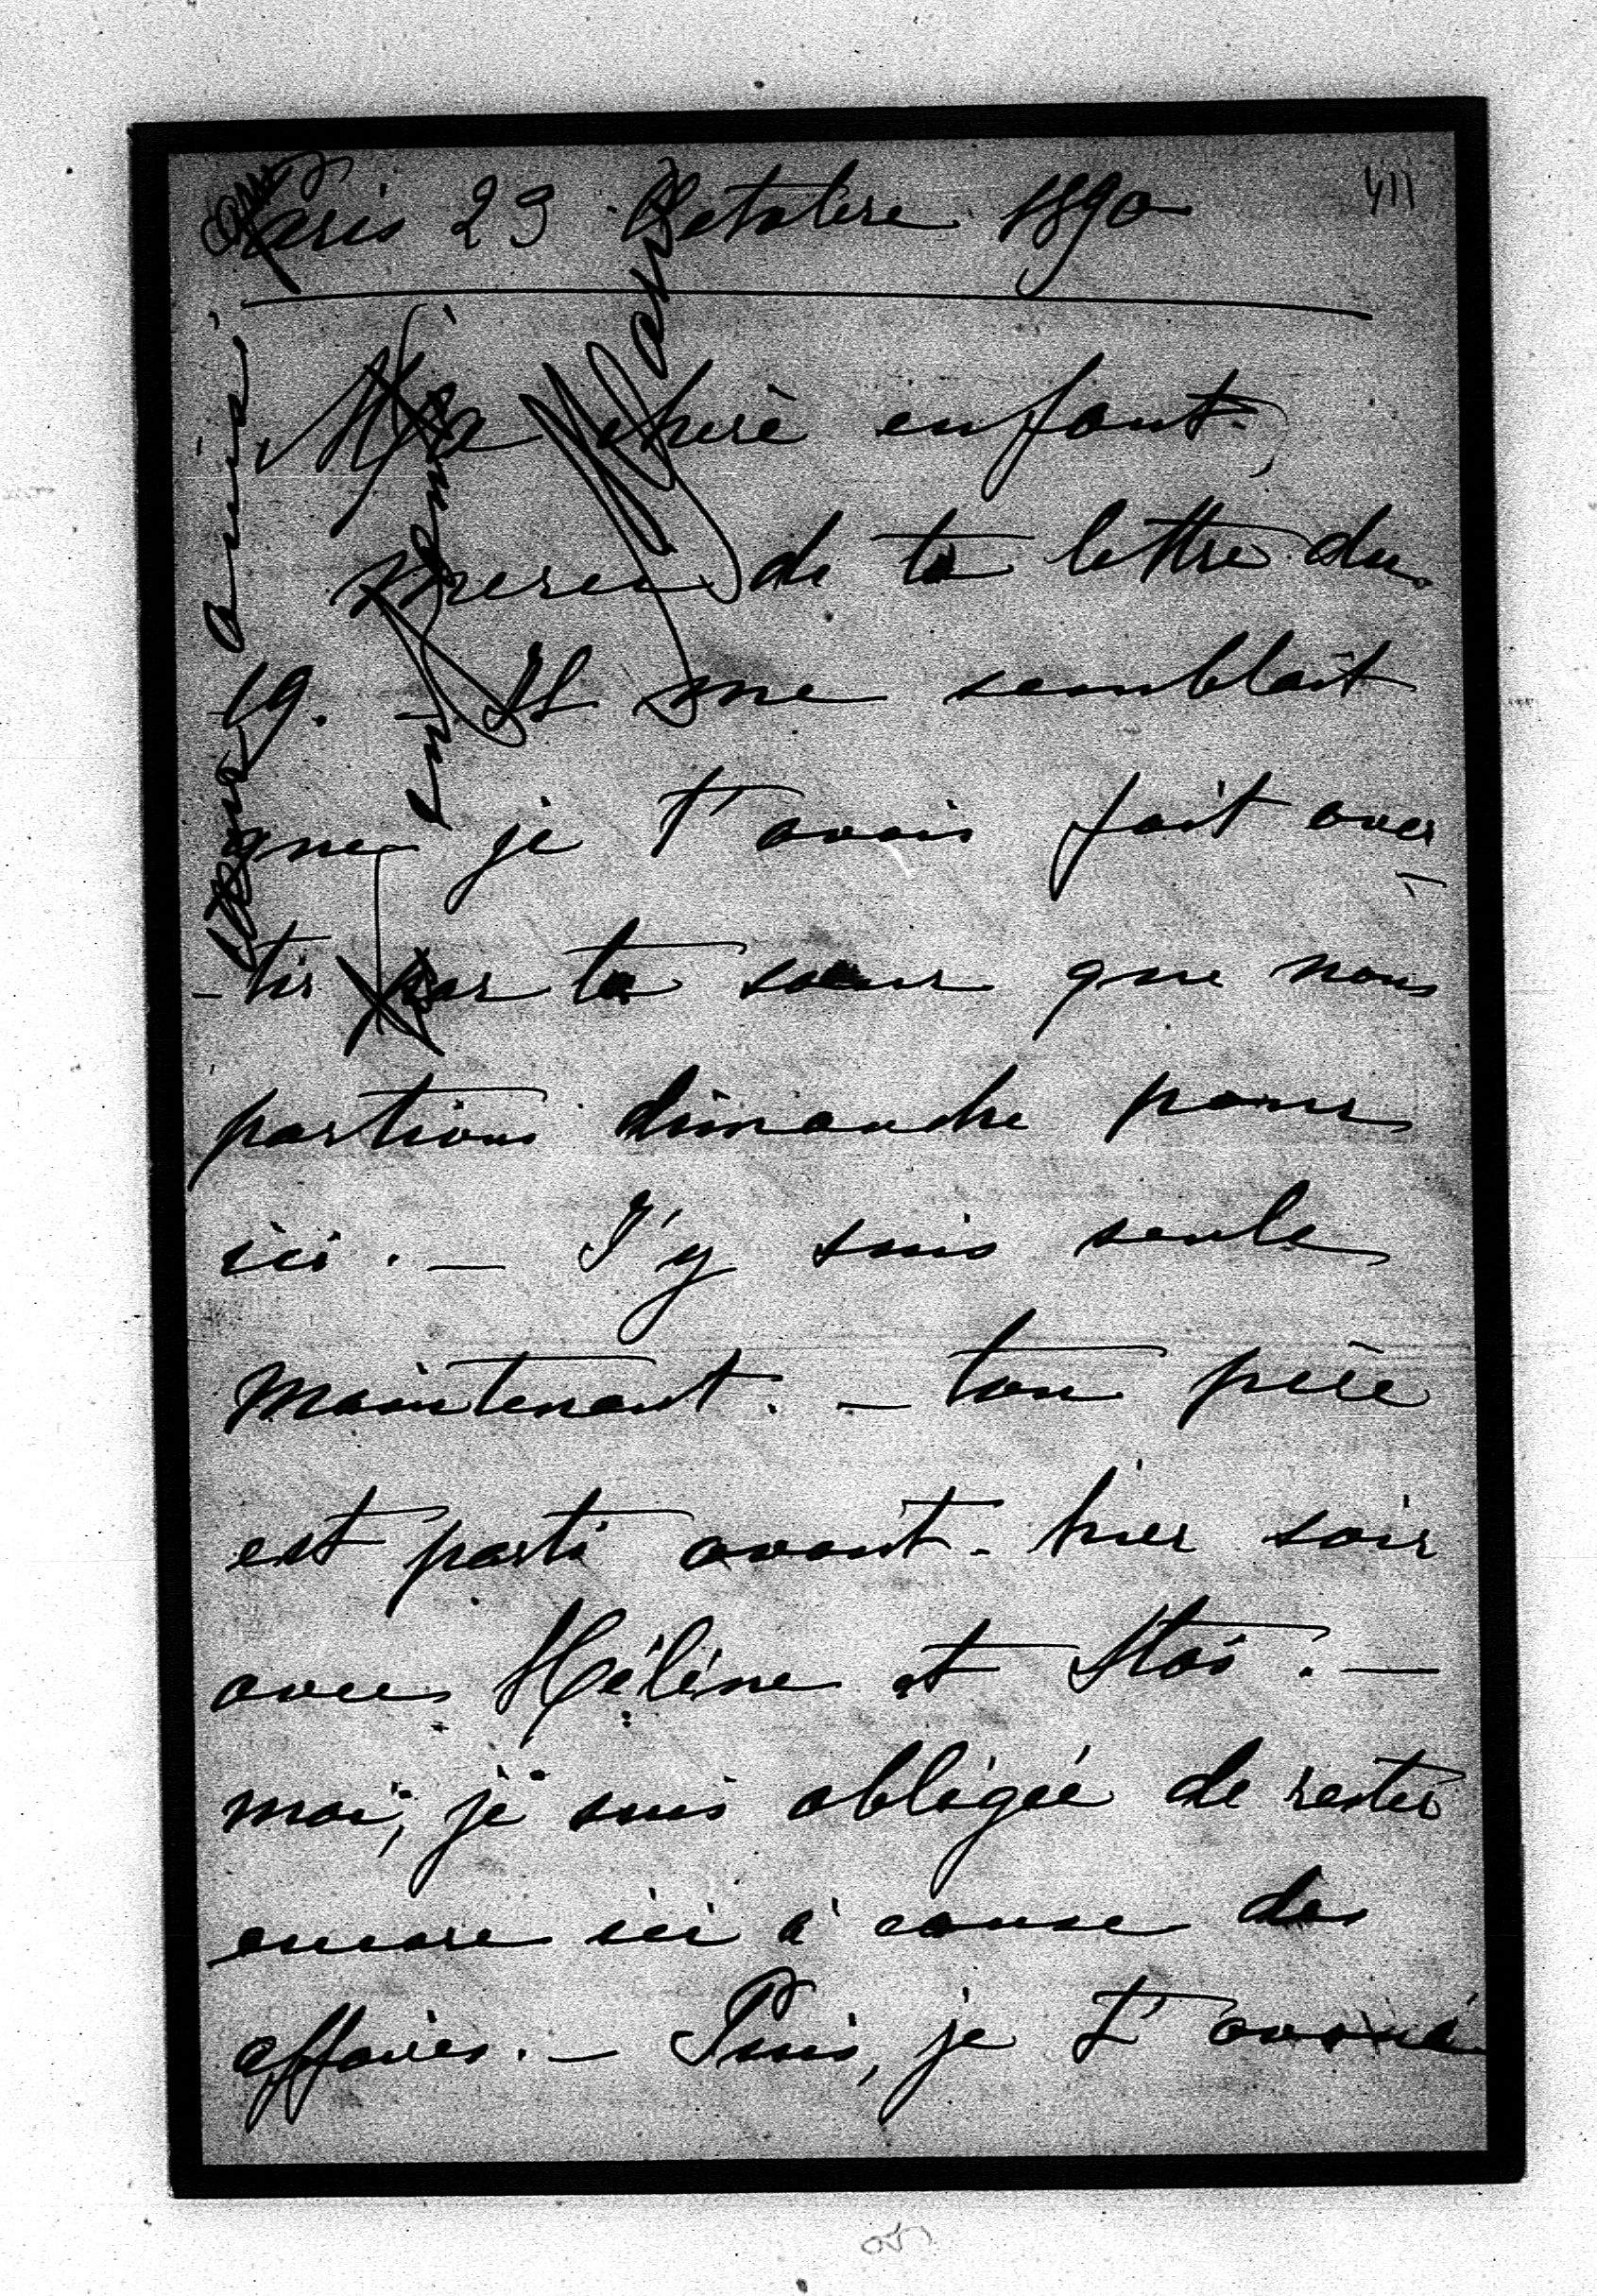 411
Paris 23 Octobre 1890
Ma chère enfant,
merci de ta lettre du
19. — Il me semblait
que je t'avais fait aver
-tir par ta sœur que nous
partions dimanche pour
ici. — J'y suis seule
maintenant. — ton père
est parti avant-hier soir
avec Hélène et
moi, je suis obligée de rester
encore ici à cause des
affaires. — Puis, je t'avoue